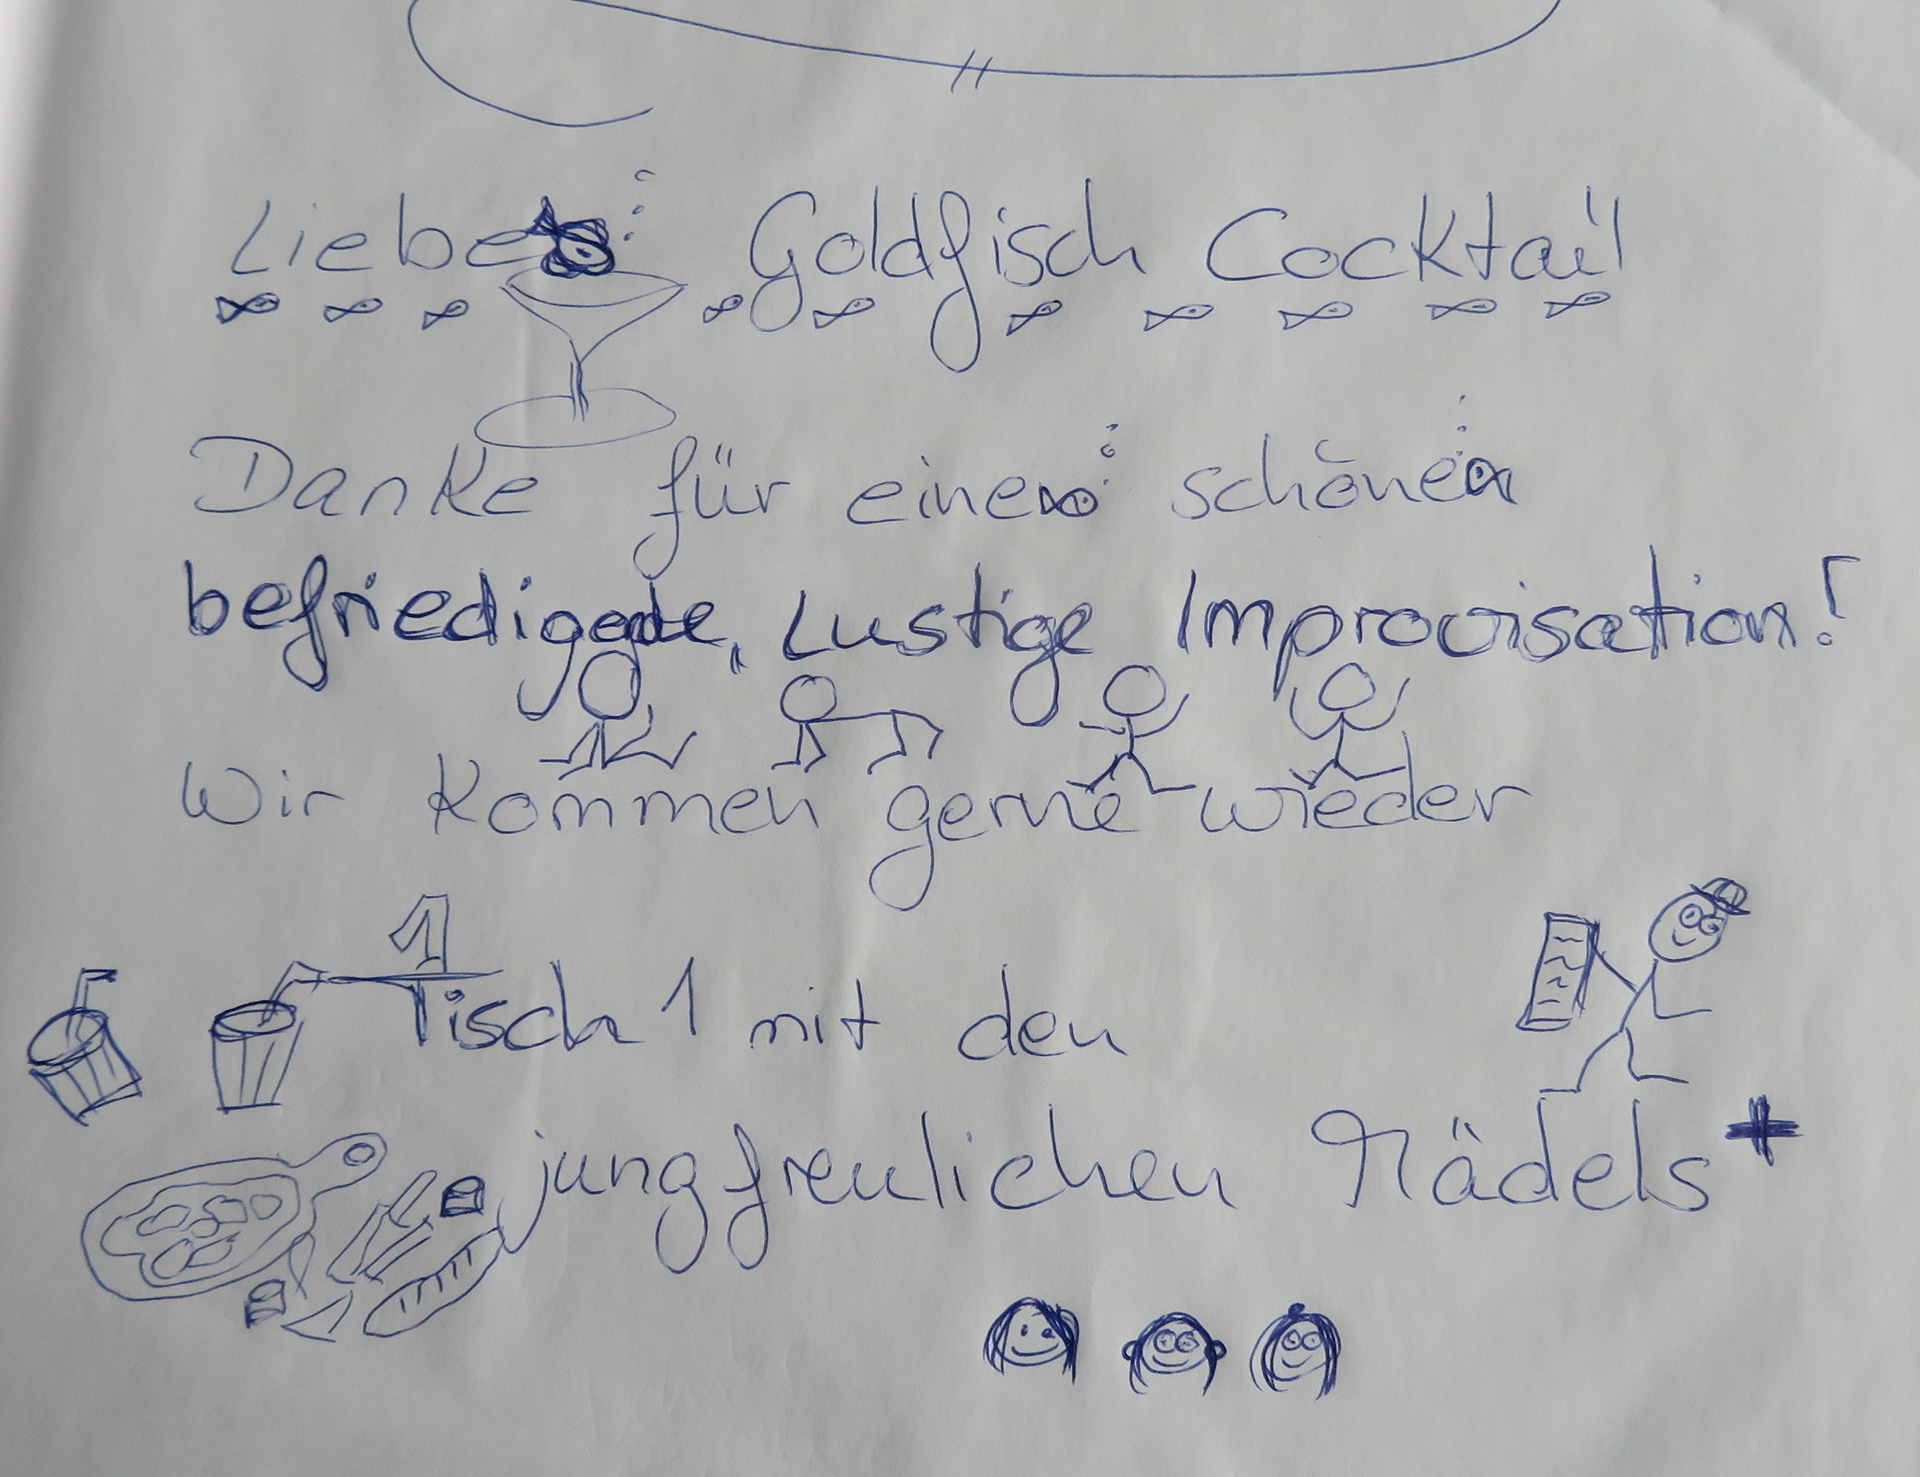 Liebe Goldfisch Cocktail
Danke für eine schöne
befriedigende, Lustige Improvisation!
Wir kommen gerne wieder
1
Tisch 1 mit den
jungfreulichen Mädels+